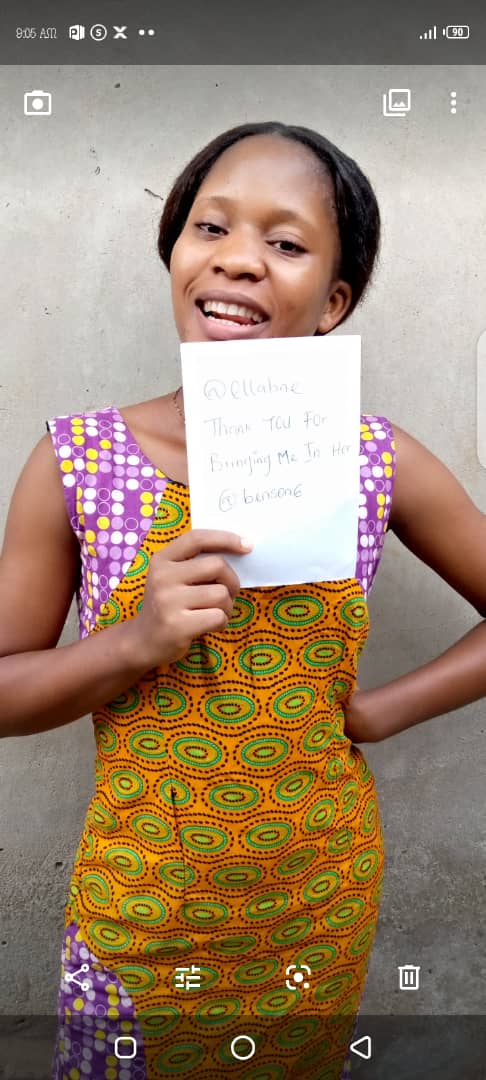 9:05 AM
90
@ellabne
Thank YOU For
Bringing Me In Her
@benson6